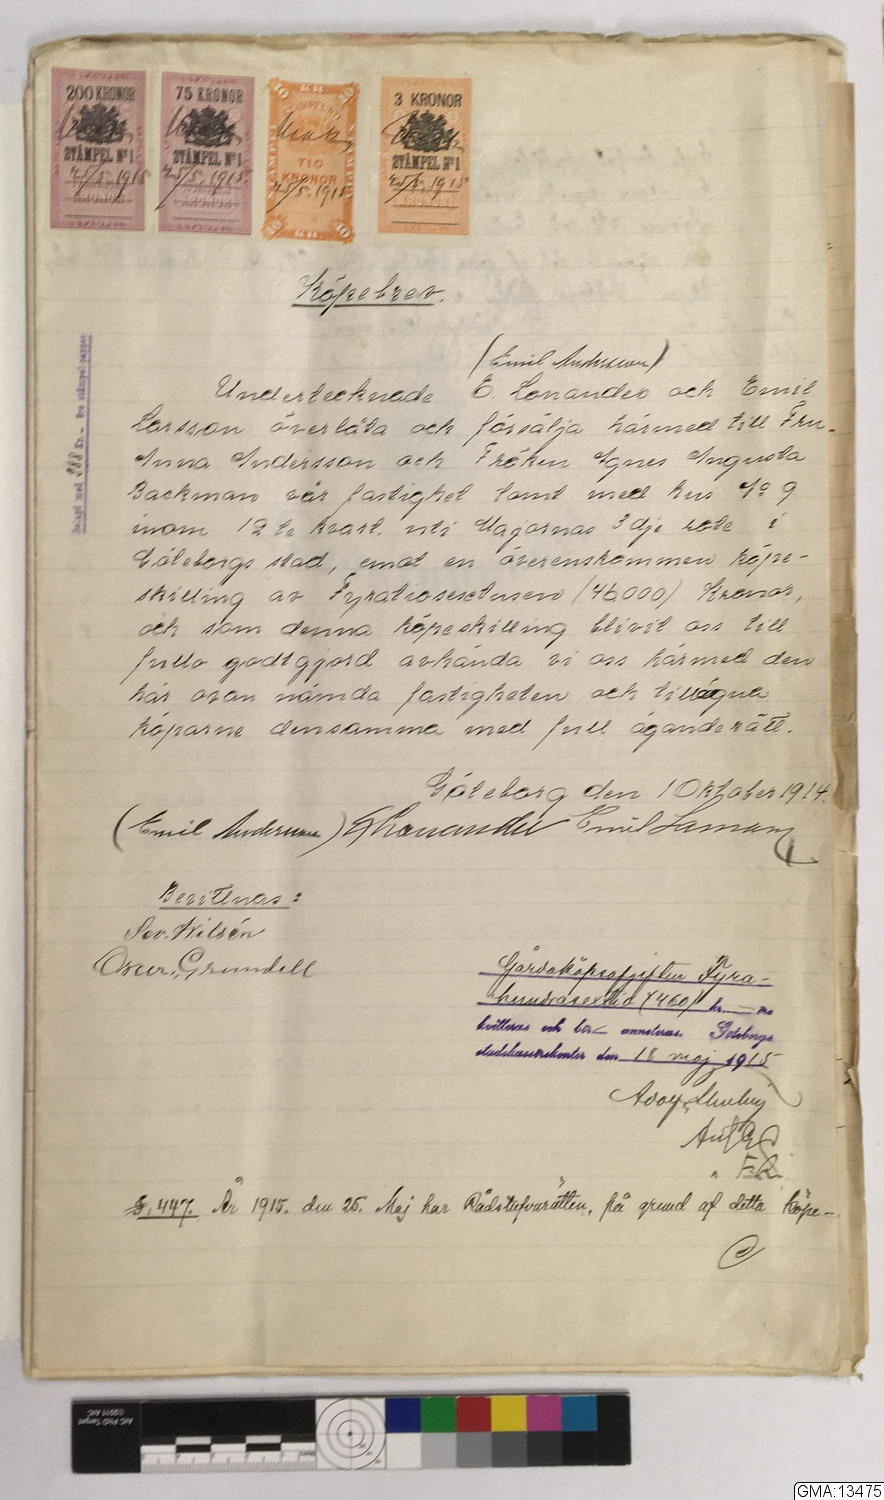 200 KRONOR
STÄMPEL No 1
25/5. 1915
KRONOR
75 KRONOR
STÄMPEL No 1
25/5. 1915
KRONOR
10 10
TIO
KRONOR
25/5. 1915
10 10
3 KRONOR
STÄMPEL No 1
25/5. 1915
KRONOR
Köpebrev.
Belagt med 288 Kr.
(Emil Andersson)
Undertecknade E. Lonander och Emil
Larsson överlåta och försälja härmed till Fru
Anna Andersson och Fröken Agnes Augusta
Backman vår fastighet tomt med hus No 9
inom 12te kvart. uti Magornas 3dje rote i
Göteborgs stad, emot en överenskommen köpe-
skilling av Fyratiosextusen (46000) Kronor,
och som denna köpeskilling blivit oss till
fullo godtgjord avhända vi oss härmed den
här ovan nämda fastigheten och tillägna
köparne densamma med full äganderätt.
Göteborg den 1 Oktober 1914.
(Emil Andersson) E Lonander Emil Larsson
Bevittnas:
Nilsén
Oscar Grundell
Gårdsköpsafgiften Fyra-
hundrasextio (460) kr.
kvitteras och bör annoteras. Göteborgs
stadskassekontor den 18 maj 1915
Adolf
§. 447. År 1915. den 25. Maj har Rådstufvurätten, på grund af detta köpe-
GMA:13475